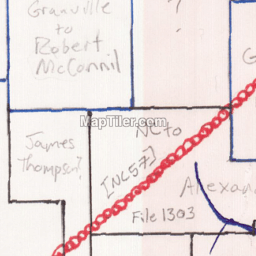 Granville
to
Robert
McConnil
?
G
MapTiler.com
NC to
[NC57]
James
Thompson?
Alexan
File 1303